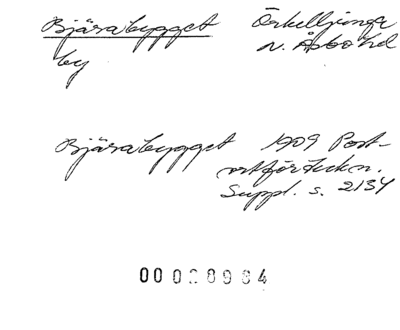 Bjärabygget Örkelljunga
by N. Åsbo hd
Bjärabygget 1909 Post-
ortförteckn.
Suppl. s. 2134